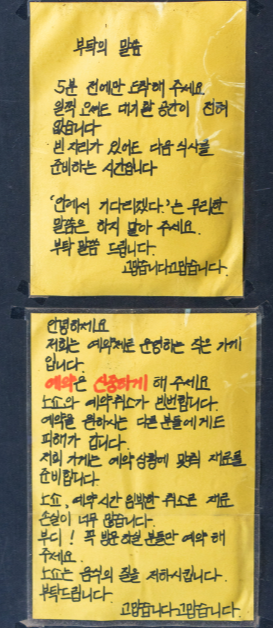 부탁의 말씀
5분 전에만 도착해 주세요.
일찍 오셔도 대기할 공간이 전혀
없습니다
빈 자리가 있어도 다음 식사를
준비하는 시간입니다
'안에서 기다리겠다.'는 무리한
말씀은 하지 말아 주세요.
부탁 말씀 드립니다.
고맙습니다고맙습니다.
안녕하세요
저희는 예약제로 운영하는 작은 가게
입니다.
예약은 신중하게 해 주세요
노쇼와 예약취소가 빈번합니다.
예약을 원하시는 다른 분들에게도
피해가 갑니다.
저희 가게는 예약상황에 맞춰 재료를
준비합니다.
노쇼, 예약시간 임박한 취소로 재료
손실이 너무 많습니다.
부디! 꼭 방문 하실 분들만 예약 해
주세요.
노쇼는 음식의 질을 저하시킵니다.
부탁드립니다.
고맙습니다고맙습니다.